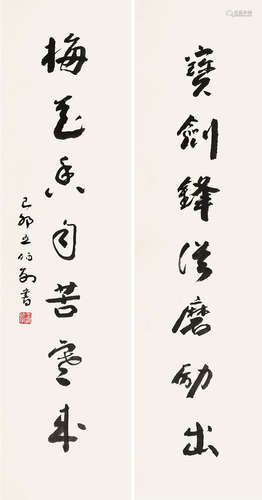 寶劍鋒從磨勵出
梅花香自苦寒來
己卯王伯敏書